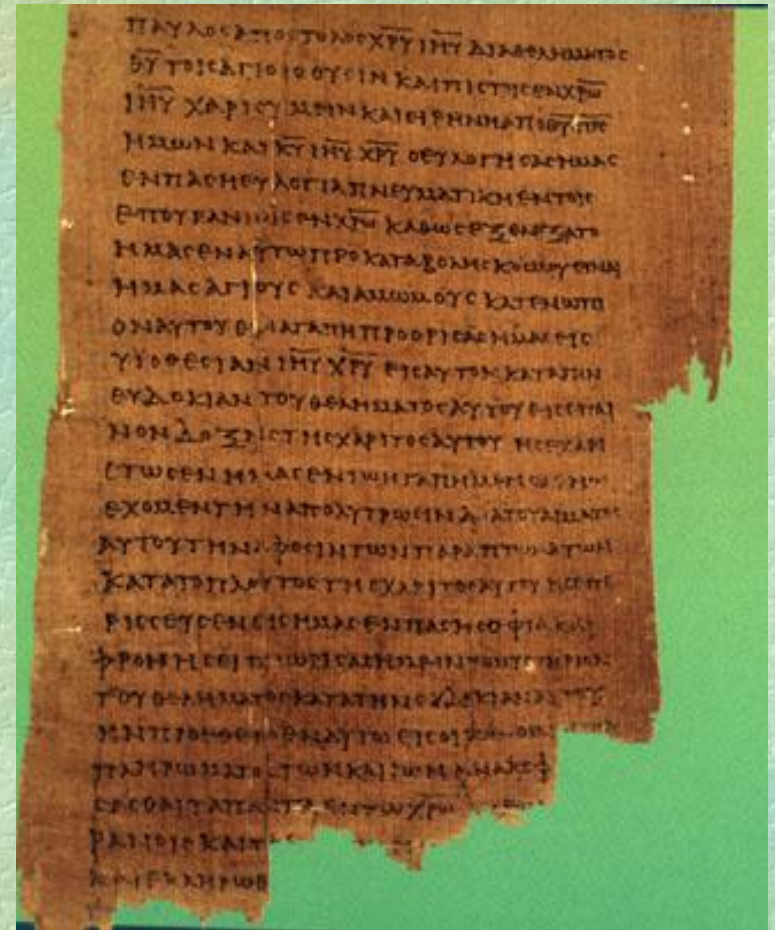 ΠΑΥΛΟϹΑΠΟϹΤΟΛΟϹΧΡΥ ΙΗΥ ΔΙΑΘΕΛΗΜΑΤΟϹ
ΘΥ ΤΟΙϹΑΓΙΟΙϹΟΥϹΙΝ ΚΑΙΠΙϹΤΟΙϹΕΝΧΡΩ
ΙΗΥ ΧΑΡΙϹΥΜΕΙΝΚΑΙΕΙΡΗΝΗΑΠΟΘΥ ΠΡϹ
ΗΜΩΝ ΚΑΙ ΚΥ ΙΗΥ ΧΡΥ ΟΕΥΛΟΓΗϹΑϹΗΜΑϹ
ΕΝΠΑϹΗΕΥΛΟΓΙΑΠΝΕΥΜΑΤΙΚΗΕΝΤΟΙϹ
ΕΠΟΥΡΑΝΙΟΙϹΕΝΧΡΩ ΚΑΘΩϹΕΞΕΛΕΞΑΤΟ
ΗΜΑϹΕΝΑΥΤΩΠΡΟΚΑΤΑΒΟΛΗϹΚΟϹΜΟΥΕΙΝΑΙ
ΗΜΑϹΑΓΙΟΥϹ ΚΑΙΑΜΩΜΟΥϹ ΚΑΤΕΝΩΠΙ
ΟΝΑΥΤΟΥΕΝΑΓΑΠΗΠΡΟΟΡΙϹΑϹΗΜΑϹΕΙϹ
ΥΙΟΘΕϹΙΑΝ ΙΗΥ ΧΡΥ ΕΙϹΑΥΤΟΝΚΑΤΑΤΗΝ
ΕΥΔΟΚΙΑΝ ΤΟΥΘΕΛΗΜΑΤΟϹΑΥΤΟΥΕΙϹΕΠΑΙ
ΝΟΝΔΟΞΗϹΤΗϹΧΑΡΙΤΟϹΑΥΤΟΥ ΗϹΕΧΑΡΙ
ϹΤΩϹΕΝΗΜΑϹΕΝΤΩΗΓΑΠΗΜΕΝΩ
ΕΧΟΜΕΝΤΗΝΑΠΟΛΥΤΡΩϹΙΝΔΙΑΤΟΥΑΙΜΑΤΟϹ
ΑΥΤΟΥΤΗΝΑΦΕϹΙΝΤΩΝΠΑΡΑΠΤΩΜΑΤΩΝ
ΚΑΤΑΤΟΠΛΟΥΤΟϹΤΗϹΧΑΡΙΤΟϹΑΥΤΟΥ ΗϹΕΠΕ
ΡΙϹϹΕΥϹΕΝΕΙϹΗΜΑϹΕΝΠΑϹΗϹΟΦΙΑΚΑΙ
ΦΡΟΝΗϹΕΙΓΝΩΡΙϹΑϹΗΜΕΙΝΤΟΜΥϹΤΗΡΙΟΝ
ΤΟΥΘΕΛΗΜΑΤΟϹΚΑΤΑΤΗΝΕΥΔΟΚΙΑΝΑΥΤΟΥ
ΗΝΠΡΟΕΘΕΤΟΕΝΑΥΤΩΕΙϹΟΙΚΟΝΟΜ
ΠΛΗΡΩΜΑΤΟϹΤΩΝΚΑΙΡΩΝΑΝΑΚΕΦ
ϹΑϹΘΑΙΤΑΠΑΝΤΑΕΝΤΩΧΡΩ
ΡΑΝΟΙϹΚΑΙΤ
ΚΑΙΕΚΛΗΡΩΘ